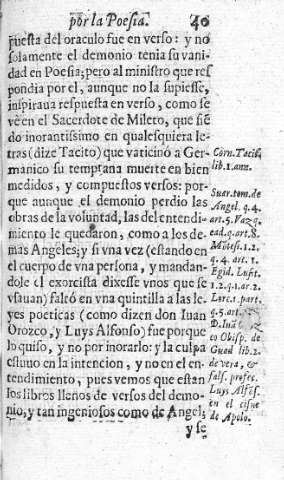 por la Poesia. 40
puesta del oraculo fue en verso: y no
solamente el demonio tenia su vani-
dad en Poesia; pero al ministro que res
pondia por el, aunque no la supiesse,
inspiraua respuesta en verso, como se
vè en el Sacerdote de Mileto, que siẽ
do inorantissimo en qualesquiera le-
tras (dize Tacito) que vaticinò a Ger-
manico su temprana muerte en bien
medidos, y compuestos versos: por-
que aunque el demonio perdio las
obras de la voluntad, las del entendi-
miento le quedaron, como a los de-
mas Angeles; y si vna vez (estando en
el cuerpo de vna persona, y mandan-
dole el exorcista dixesse vnos que se
vsauan) faltò en vna quintilla a las le-
yes poeticas (como dizen don Iuan
Orozco, y Luys Alfonso) fue porque
lo quiso, y no por inorarlo: y la culpa
estuuo en la intencion, y no en el en-
tendimiento, pues vemos que estan
los libros llenos de versos del demo-
nio, y tan ingeniosos como de Angel;
y se
Corn. Tacit.
lib. 1. ann.
Suar. tom. de
Angel. q. 4.
art. 5.
q. art. 8.
1. 2.
q. 4. art.
Egid. Lusit.
1. 2. q. 1. ar. 2.
1. part.
q. 5. art.
D. Iuã
co Obisp. de
Guad lib. 2.
de vera, &
fals. profec.
Luys Alfõs.
en el cisne
de Apolo.